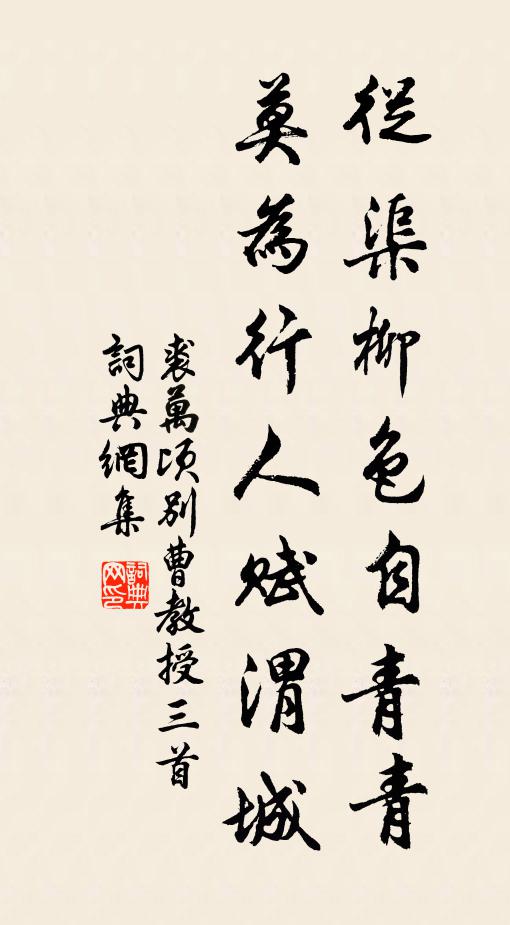 從渠柳色自青青
莫為行人賦渭城
裘萬頃別曹教授三首
詞典網集
詞典网印